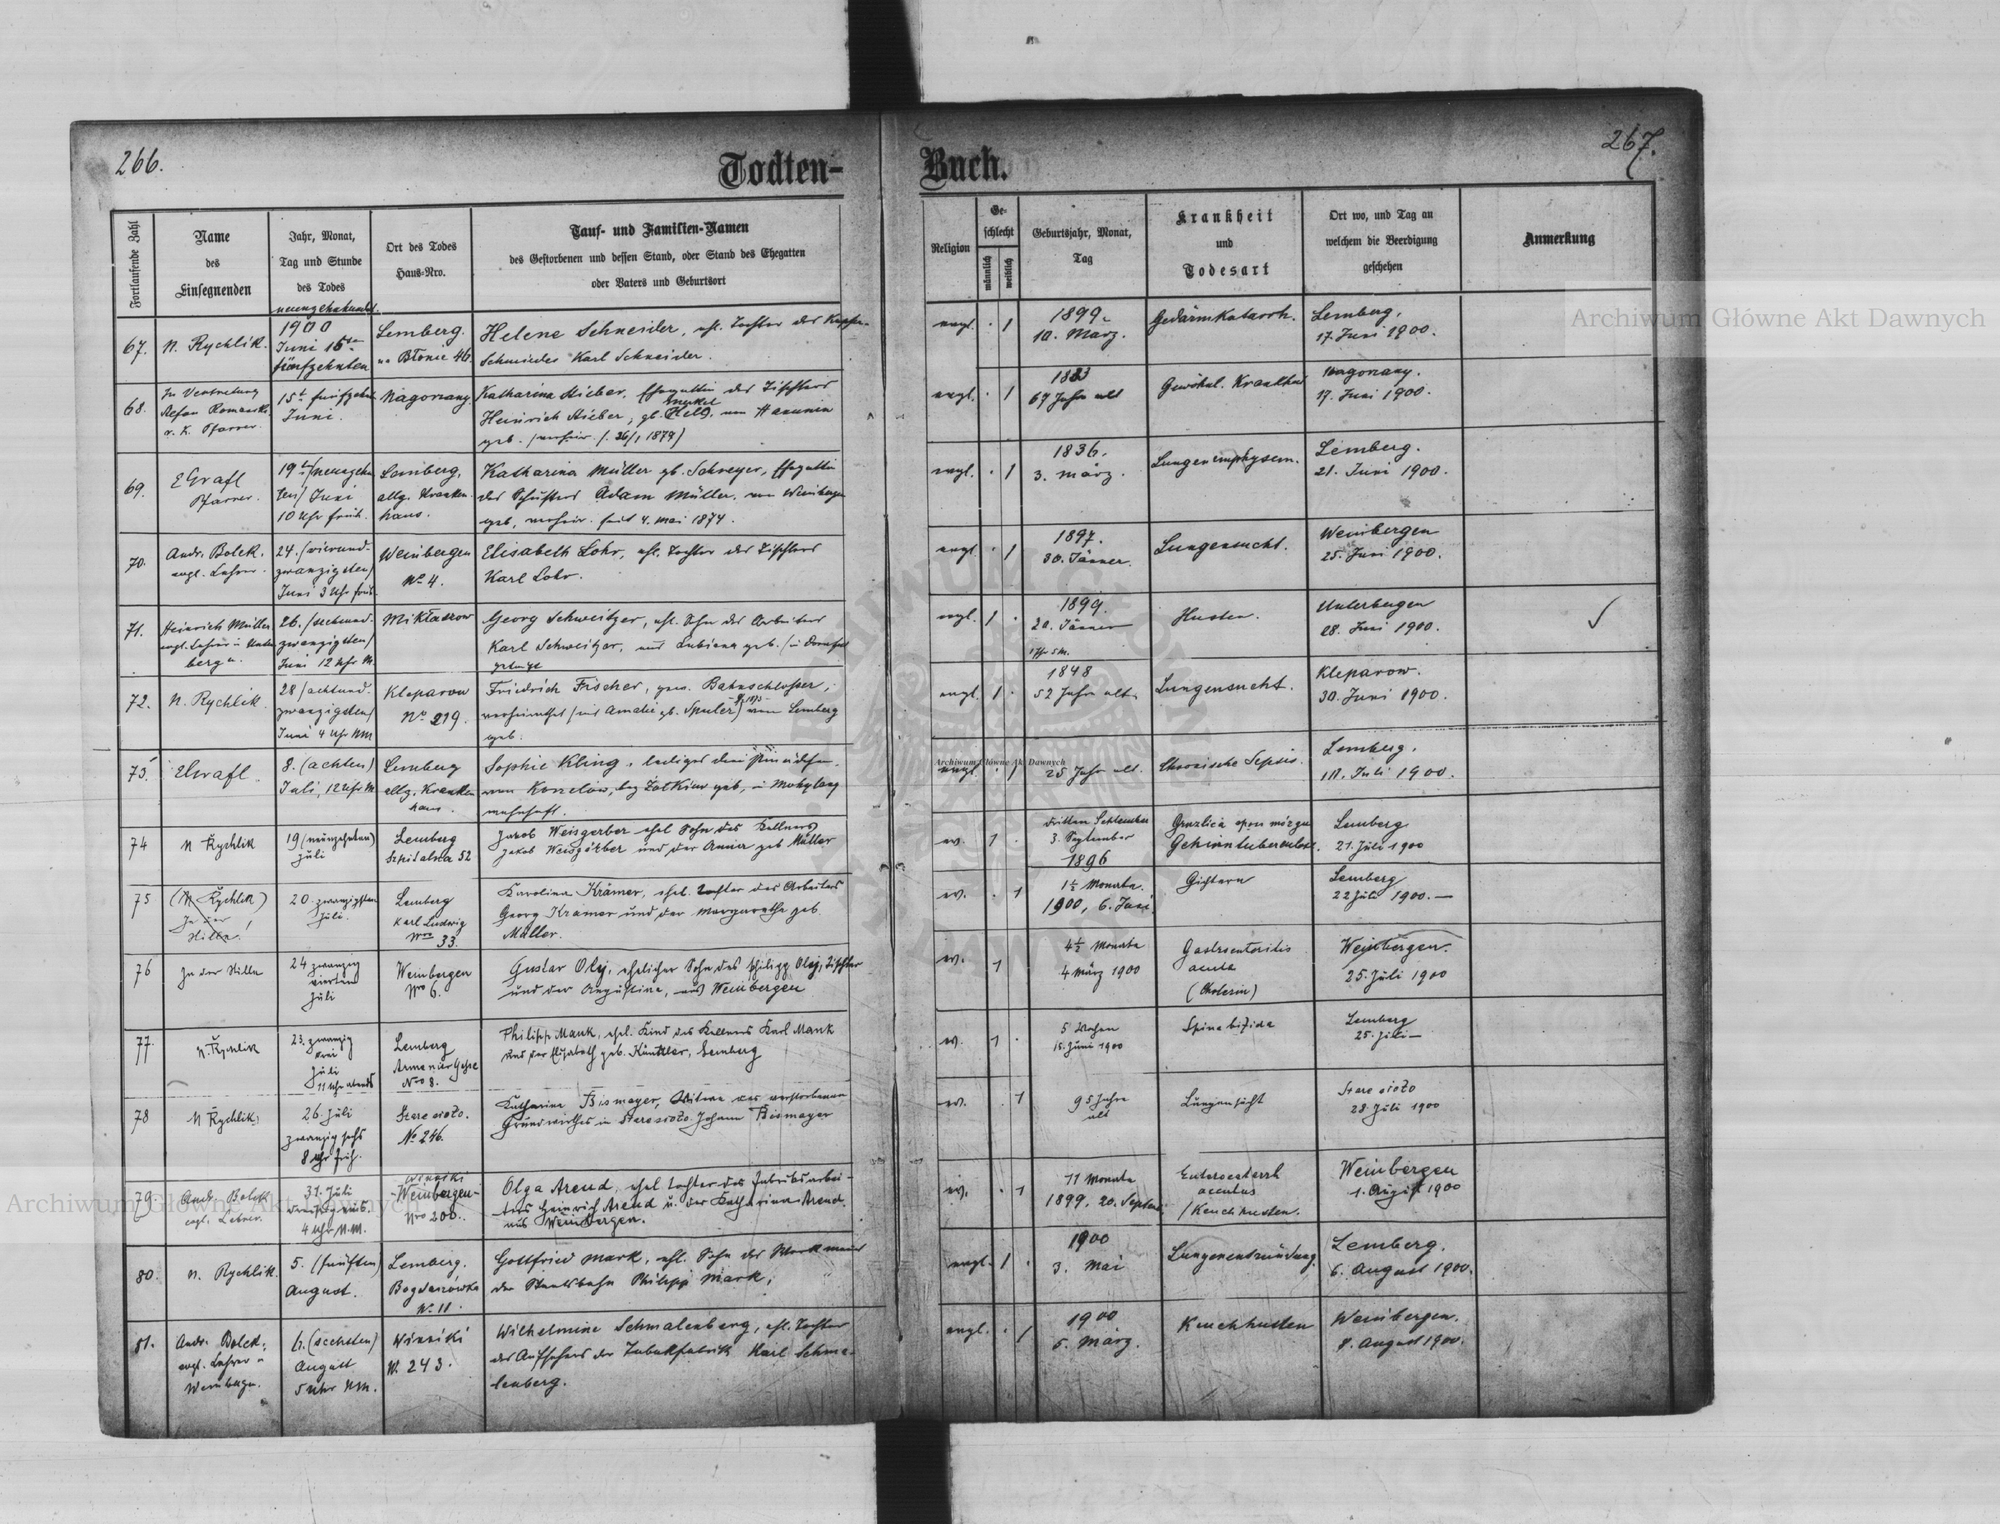 266.
267.
Todten-
Buch.
Fortlaufende Zahl
Name
des
Einsegnenden
Jahr, Monat,
Tag und Stunde
des Todes
Ort des Todes
Haus-Nro.
Tauf- und Familien-Namen
des Gestorbenen und dessen Stand, oder Stand des Ehegatten
oder Vaters und Geburtsort
Religion
Ge-
schlecht
männlich
weiblich
Geburtsjahr, Monat,
Tag
Krankheit
und
Todesart
Ort wo, und Tag an
welchem die Beerdigung
geschehen
Anmerkung
67.
N. Rychlik.
1900
Juni 15
fünfzehnten
Lemberg.
na Błonie 46
Helene Schneider, ehl. Tochter des
Schmiedes Karl Schneider.
evgl. 1
1899.
10. März.
Gedärmkatarrh.
Lemberg,
17. Juni 1900.
68.
In Vertretung
Stefan
r. k. Pfarrer.
15t
Juni.
Nagorzany
Katharina Hieber, Ehegattin des Tischlers
Heinrich Hieber, gb.
geb.
evgl. 1
67 Jahr alt
17. Juni 1900.
69.
EGrafl
Pfarrer.
Juni
10 Uhr früh.
Lemberg,
allg. Kranken
haus.
Katharina Müller gb. Schreyer, Ehegattin
des Schusters Adam Müller, von Weinbergen
geb, verheir. seit 4. Mai 1874.
evgl. 1
1836.
3. März.
Lungenemphysem.
Lemberg.
21. Juni 1900.
70.
Andr. Bolek,
evgl. Lehrer.
24. /vierund-
zwanzigsten/
Juni 3 Uhr früh
Weinbergen
No 4.
Elisabeth Lohr, ehl. Tochter des Tischlers
Karl Lohr.
evgl. 1
1897.
30. Jänner.
Lungensucht.
Weinbergen
25. Juni 1900.
71.
Heinrich Müller
evgl. Lehrer in Unter
bergen.
26. /sechsund-
zwanzigsten/
Juni 12 Uhr M.
Mikłaszow
Georg Schweitzer, ehl. Sohn des Arbeiters
Karl Schweitzer,
evgl. 1
1899.
20. Jänner
Husten.
Unterbergen
28. Juni 1900.
72.
N. Rychlik.
28 /achtund-
zwanzigsten/
Juni 4 Uhr NM
Kleparow
No 219.
Friedrich Fischer, gew. Bahnschlosser,
verheirathet /mit Amalie gb. Spuler/ von Lemberg
geb.
evgl. 1
1848
52 Jahr alt.
Lungensucht.
Kleparow.
30. Juni 1900.
73.
EGrafl.
8. (achten)
Juli, 12 Uhr M
Lemberg
allg. Kranken
haus.
Sophie Kling, lediges Dienstmädchen
wohnhaft.
evgl. 1
25 Jahr alt.
Chronische Sepsis.
Lemberg.
Juli 1900.
74
N Rychlik
19 (neunzehnten)
Juli
Lemberg
Szpitalna 52
Jakob Weisgerber ehel Sohn des Kellners
Jakob Weisgerber und der Anna geb Müller
ev. 1
dritten September
3. September
1896
Gruźlica opon mózgu
Gehirntuberculose.
Lemberg
21. Juli 1900
75
(N Rychlik)
In der
Stille!
20 zwanzigsten
Juli.
Lemberg
Karl Ludwig
Nro 33.
Karolina Krämer, ehel. Tochter des Arbeiters
Georg Krämer und der Margarethe geb.
Müller.
ev. 1
1½ Monate.
1900, 6. Juni
Gichtern
Lemberg
22 Juli 1900.—
76
In der Stille
24 zwanzig
vierten
Juli
Weinbergen
Nro 6.
Gustav Olej, ehelicher Sohn des Philipp Olej, Tischler
und der Augustine, aus Weinbergen
ev. 1
4½ Monate
4 März 1900
Gastroenteritis
acuta
(Cholerin)
Weinbergen.
25. Juli 1900
77.
N. Rychlik
23. zwanzig
drei
Juli
11 Uhr abends
Lemberg
Nro 8.
Philipp Mank, ehel. Kind des Kellners Karl Mank
und der Elisabeth geb. Künstler, Lemberg
ev. 1
5 Wochen
15. Juni 1900
Spina bifida
Lemberg
25. Juli—
78
N Rychlik
26. Juli
zwanzig sechs
8 Uhr früh.
Stare sioło.
No 246.
Katharina Bismayer, Witwe des verstorbenen
Grundwirthes in Stare sioło Johann Bismayer
ev. 1
95 Jahre
alt
Lungensucht
Stare sioło
28 Juli 1900
79
Andr Bolek
evgl. Lehrer.
31. Juli
4 Uhr N.M.
Winniki
Weinbergen
Nro 200.
Olga Arend, ehel Tochter des Fabriksarbei-
ters Heinrich Arend u. der Katharina Arend
aus Weinbergen.
ev. 1
11 Monate
1899, 20. Septem
Enterocatarrh
acutus
/Keuchhusten.
Weinbergen
1. August 1900
80.
N. Rychlik.
5. (fünften)
August.
Lemberg.
Bogdanówka
No 11.
Gottfried Mark, ehl. Sohn des Werkmann
der Staatsbahn Philipp Mark,
evgl. 1
1900
3. Mai
Lungenentzündung.
Lemberg.
6. August 1900.
81.
Andr. Bolek,
evgl. Lehrer in
Weinbergen.
6. (sechsten)
August
5 Uhr NM.
Winniki
N. 243.
Wilhelmine Schmalenberg, ehl. Tochter
des Aufsehers der Tabakfabrik Karl Schma-
lenberg.
evgl. 1
1900
5. März.
Keuchhusten
Weinbergen.
8. August 1900.
Archiwum Główne Akt Dawnych
Archiwum Główne Akt Dawnych
Archiwum Główne Akt Dawnych